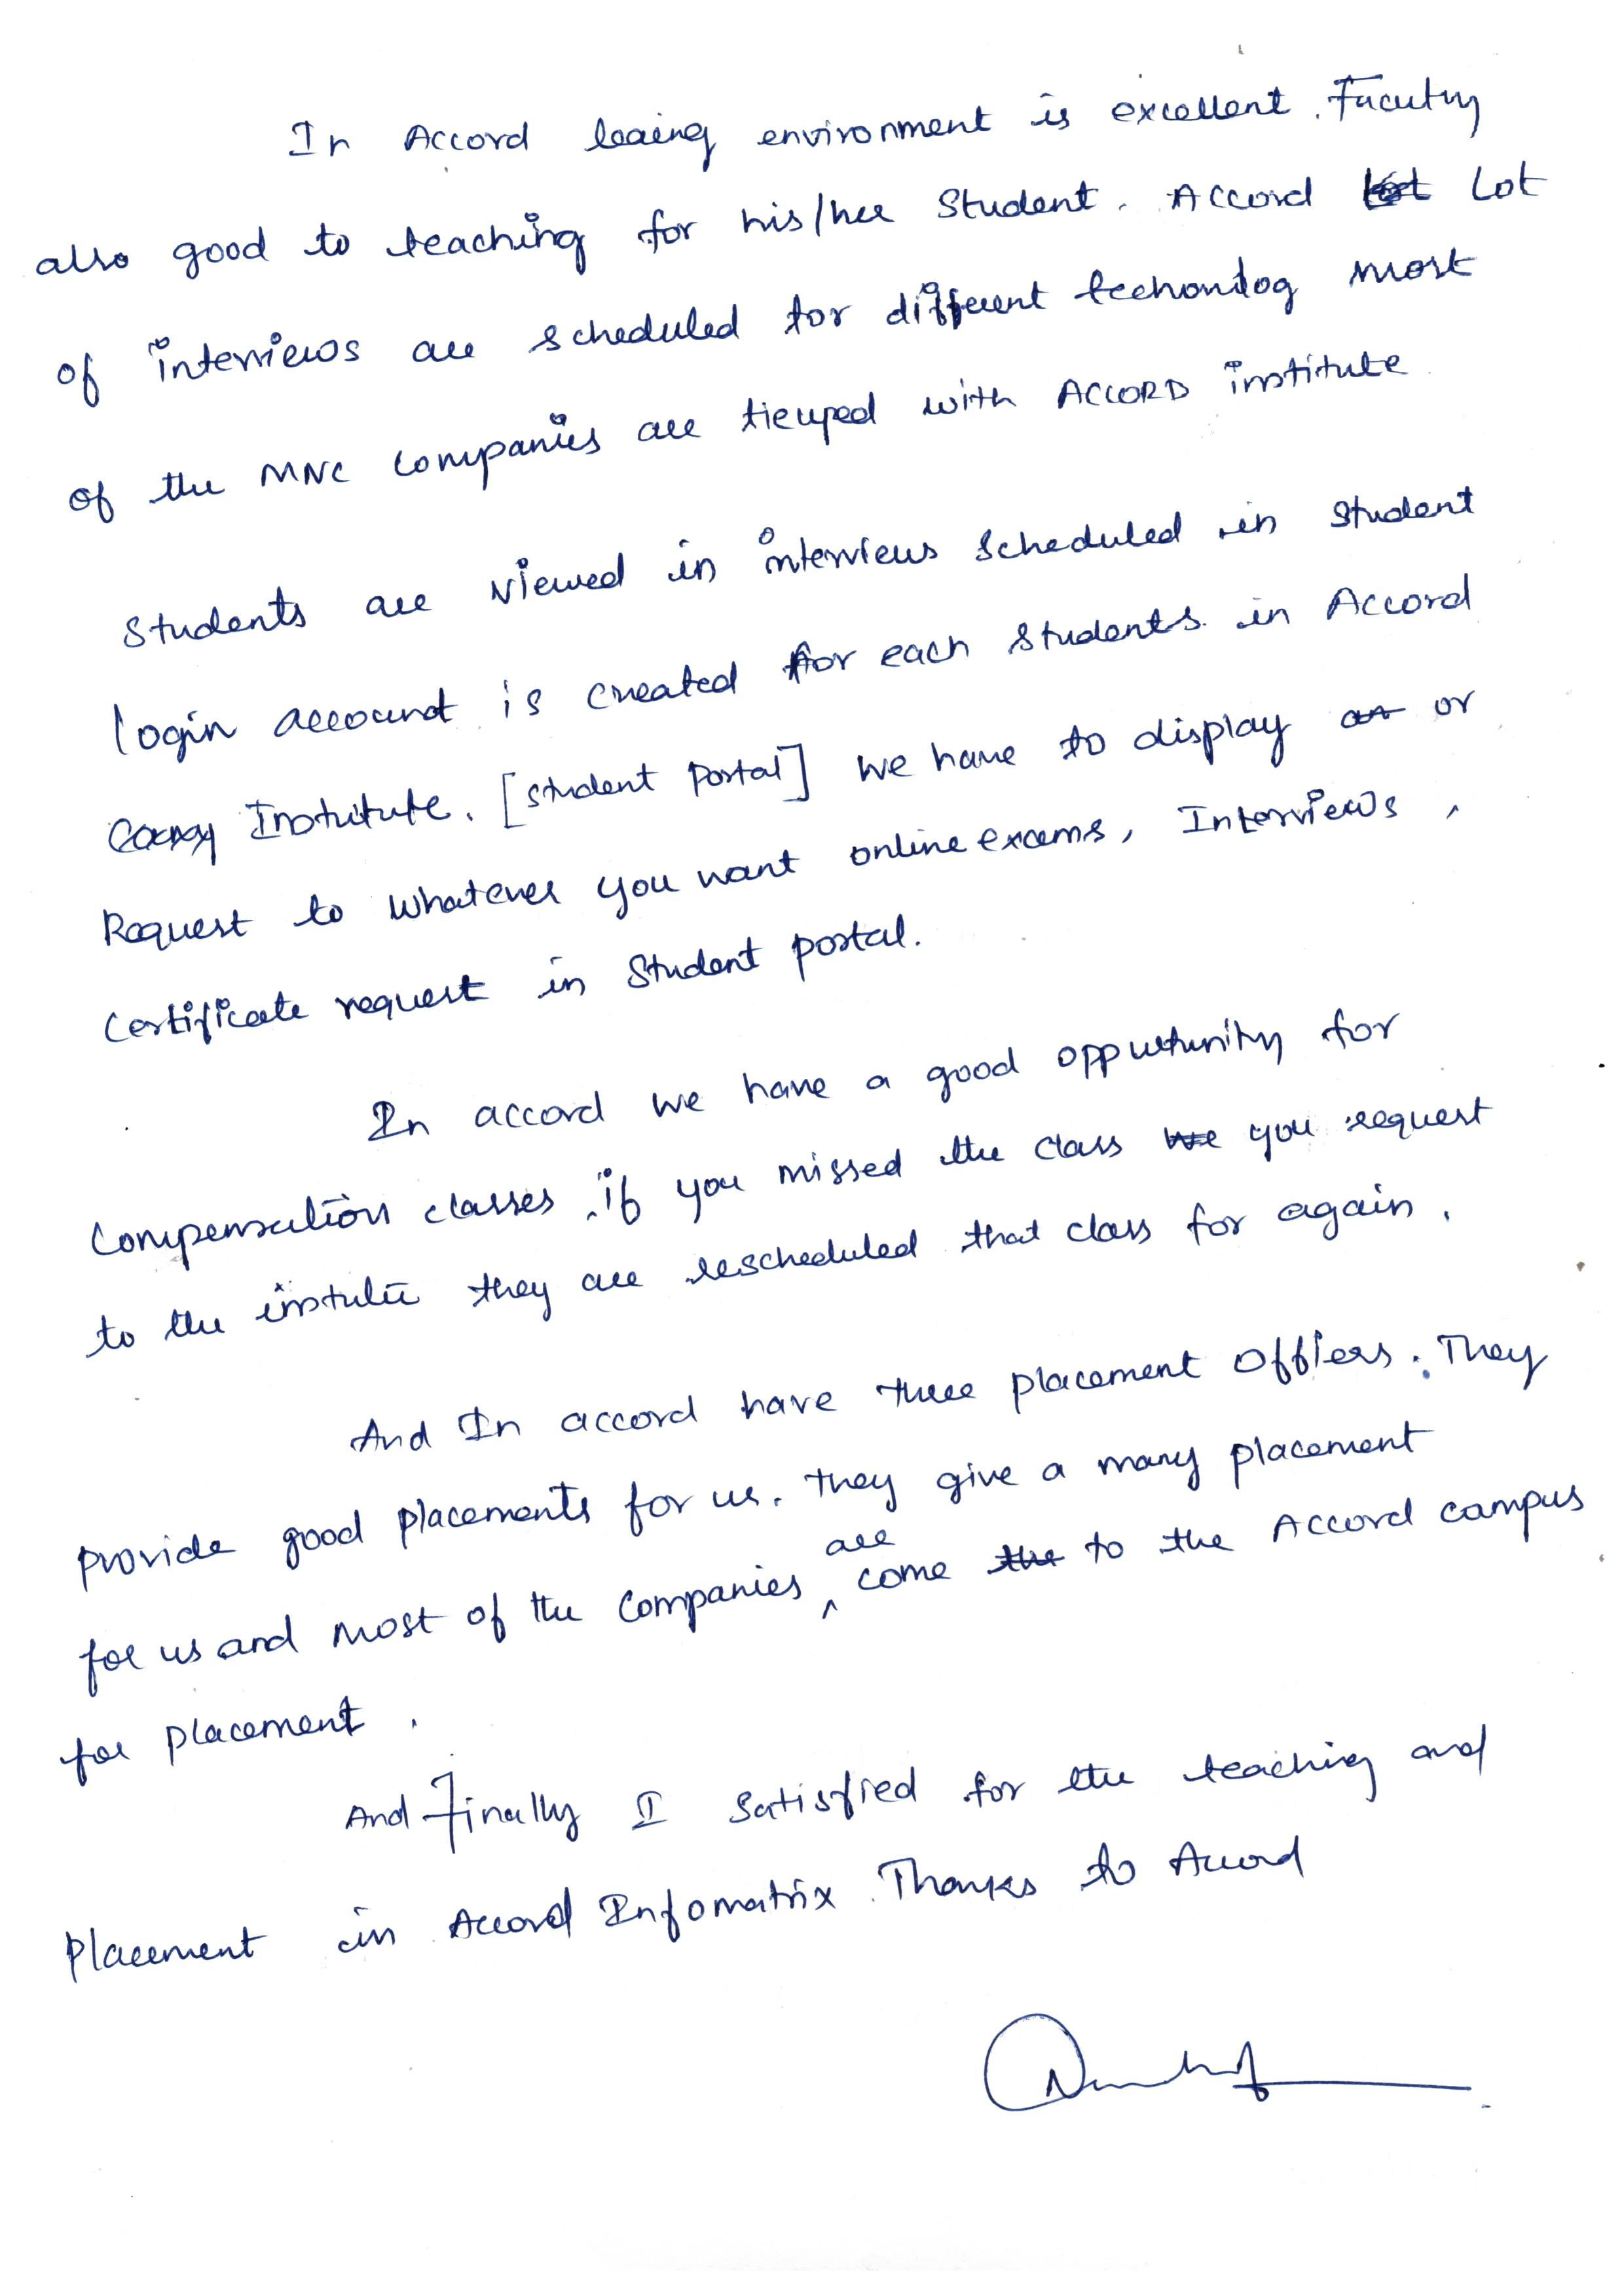 In Accord leaing environment is excellent. Facutry
also good to teaching for his/her Student. Accord Lot
of interviews are scheduled for different techonolog most
of the MNC Companies are tieuped with ACCORD institute
Students are viewed in interviews Scheduled in Student
login account is created for each Students in Accord
Institute. [Student Portal] We have to display or
Request to whatever you want online exams, Interviews,
Certificate request in Student portal.
In accord we have a good oppurtunity for
Compensation classes, if you missed the class you request
to the institute they are rescheduled that class for again.
And In accord have three placement Officers. They
provide good placements for us. They give a many placement
for us and most of the Companies are come to the Accord campus
for placement.
And Finally I Satisfied for the teaching and
Placement in Accord Infomatrix. Thanks to Accord